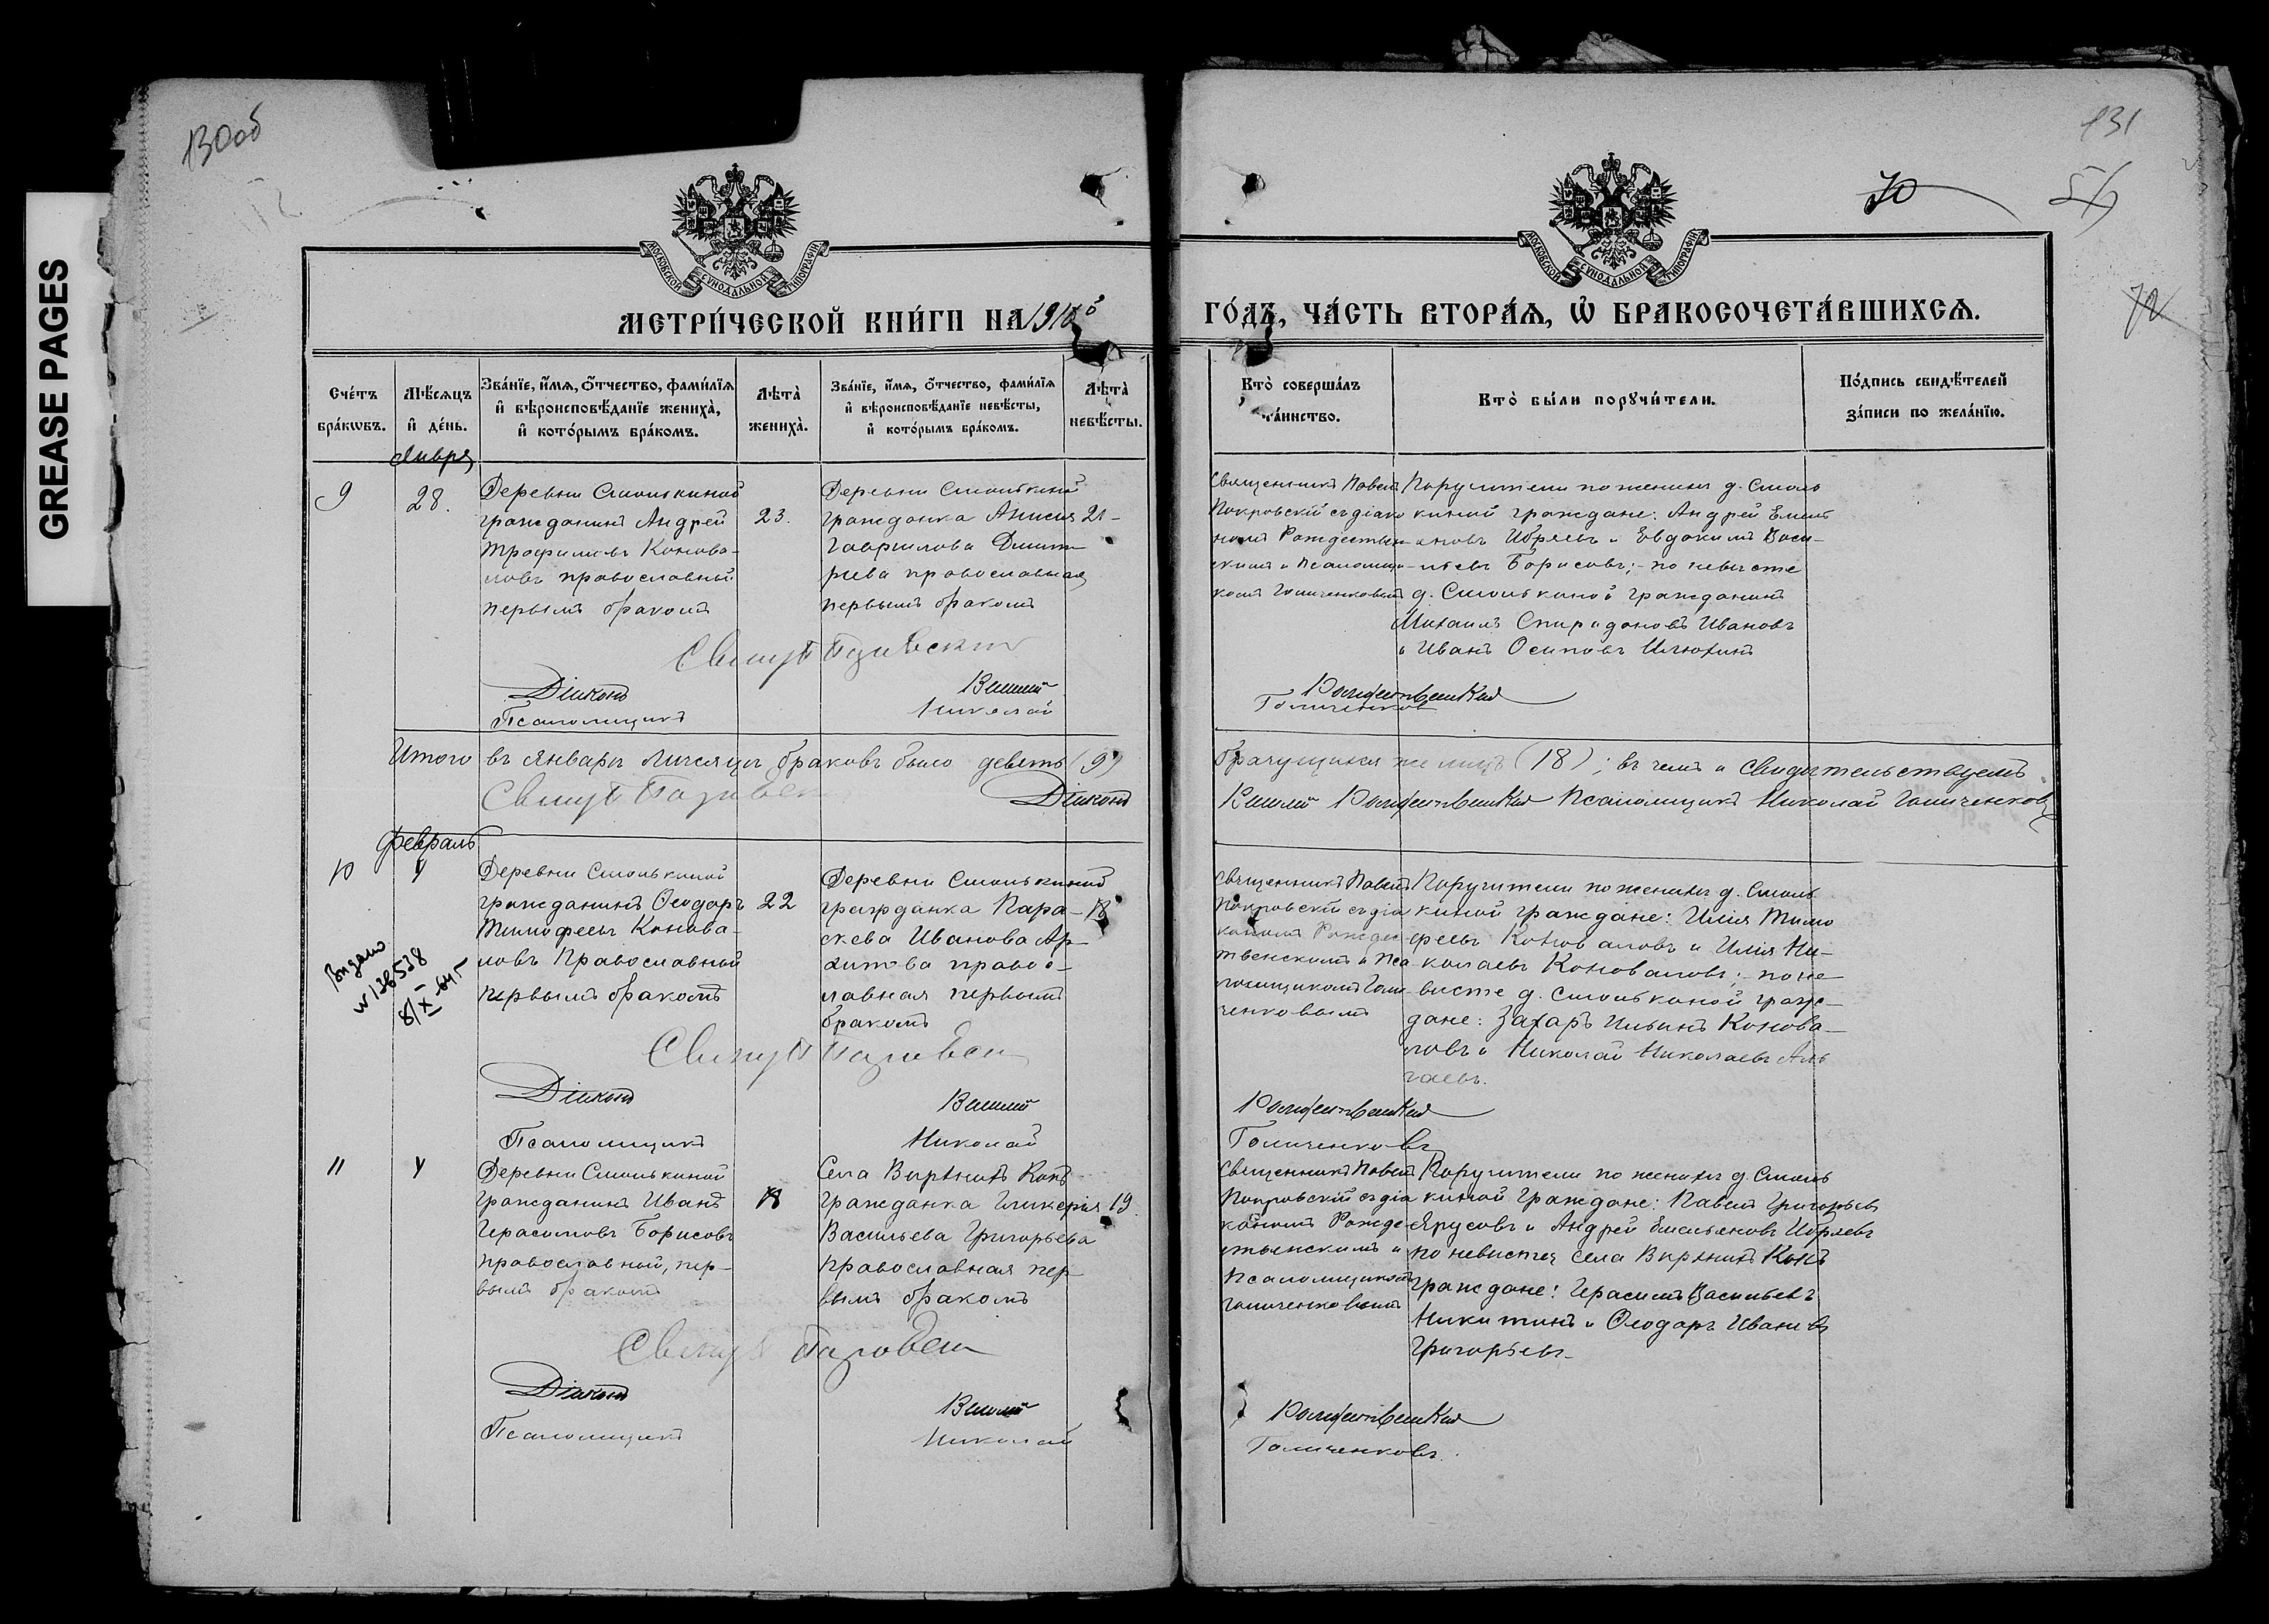 GREASE PAGES
130об
131
70
МОСКОВСКОЙ СУНОДАЛЬНОЙ ТИПОГРАФІИ
МОСКОВСКОЙ СУНОДАЛЬНОЙ ТИПОГРАФІИ
МЕТРИ́ЧЕСКОЙ КНИ́ГИ НА
ГО́ДЪ, ЧА́СТЬ ВТОРА́Ѧ, Ѽ БРАКОСОЧЕТА́ВШИХСѦ.
Сче́тъ бра́кѡвъ.
Мѣ́сѧцъ и҆ де́нь.
Зва́нїе, и҆́мѧ, ѻ҆́тчество, фами́лїѧ и҆ вѣроисповѣ́данїе жениха̀, и҆ кото́рымъ бра́комъ.
Лѣта̀ жениха̀.
Зва́нїе, и҆́мѧ, ѻ҆́тчество, фами́лїѧ и҆ вѣроисповѣ́данїе невѣ́сты, и҆ кото́рымъ бра́комъ.
Лѣта̀ невѣ́сты.
Кто̀ соверша́лъ та́инство.
Кто̀ бы́ли порꙋчи́тели.
По́дпись свидѣ́телей за́писи по жела́нїю.
Января
9
28.
Деревни Смолькиной
гражданинъ Андрей
Трофимовъ Конова-
ловъ православный
первымъ бракомъ
23.
Деревни Смолькиной
гражданка Анисия
Гаврилова Дмит
риева православная
первымъ бракомъ
21
Священникъ Павелъ
Покровскій съ діако
номъ Рождествен
скимъ и Псаломщи-
комъ Голиченковымъ
Поручители по женихѣ д. Смоль
киной граждане: Андрей Емель
яновъ Ибряевъ и Евдокимъ Васи-
льевъ Борисовъ; по невѣсте
д. Смолькиной гражданинъ
Михаилъ Спиридоновъ Ивановъ
и Иванъ Осиповъ Илюхинъ
Діаконъ Василій Рождественскій
Псаломщикъ Николай Голиченковъ
Итого въ Январѣ мѣсяцѣ браковъ было девять (9)
брачущихся же лицъ (18); въ чемъ и свидѣтельствуемъ
Діаконъ
Василій Рождественскій Псаломщикъ Николай Голиченковъ
Февраль
10
4
Деревни Смолькиной
гражданинъ Ѳеодоръ
Тимофеевъ Конова-
ловъ Православный
первымъ бракомъ
22
Деревни Смолькиной
гражданка Пара-
скева Иванова Ар-
хипова правос-
лавная первымъ
бракомъ
18
Священникъ Павелъ
Покровскій съ діа
кономъ Рождес-
твенскимъ и Пса
ломщикомъ Голи
ченковымъ
Поручители по женихѣ д. Смоль
киной граждане: Илія Тимо
феевъ Коноваловъ и Илія Ни-
колаевъ Коноваловъ; по не-
вѣсте д. Смолькиной граж-
дане: Захаръ Ильинъ Конова-
ловъ и Николай Николаевъ Аль
гаевъ.
Выдано
N 138538
8/IX-64г
Діаконъ Василій Рождественскій
Псаломщикъ Николай Голиченковъ
11
4
Деревни Смолькиной
гражданинъ Иванъ
Герасимовъ Борисовъ
православный, пер-
вымъ бракомъ
18
гражданка Гликерія
Васильева Григорьева
Православная пер-
вымъ бракомъ
19.
Священникъ Павелъ
Покровскій съ діа
кономъ Рожде-
ственскимъ и
Псаломщикомъ
Голиченковымъ
Поручители по женихѣ д. Смоль
киной граждане: Павелъ Григорьевъ
Ярусовъ и Андрей Емельяновъ Ибряевъ
граждане: Герасимъ Васильевъ
Никитинъ и Ѳеодоръ Ивановъ
Григорьевъ
Діаконъ Василій Рождественскій
Псаломщикъ Николай Голиченковъ.